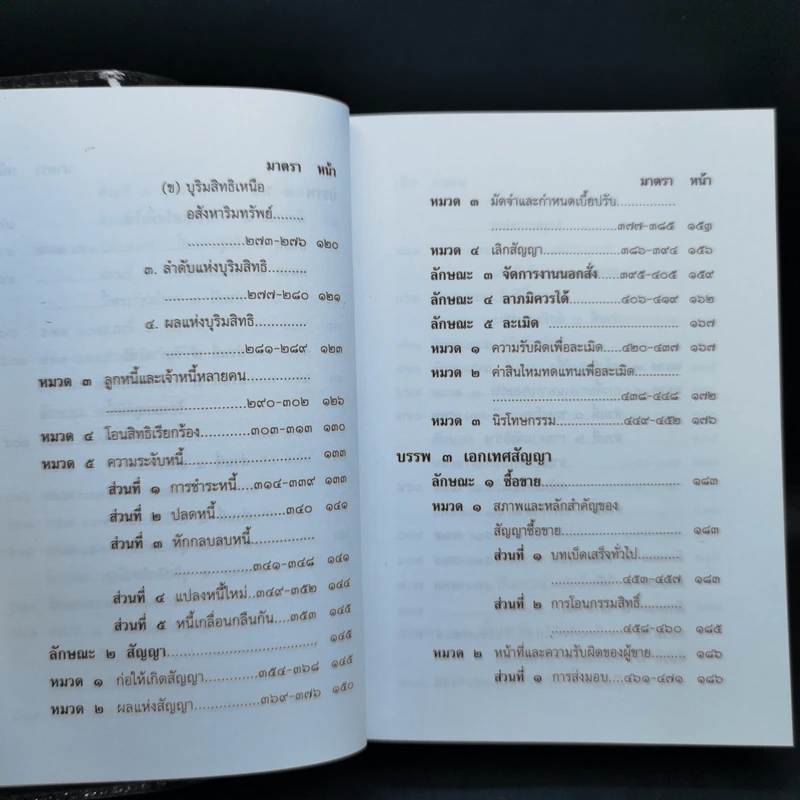 มาตรา หน้า
(ข) บุริมสิทธิเหนือ
อสังหาริมทรัพย์........
..............๒๗๓-๒๗๖ ๑๒๐
๓. ลำดับแห่งบุริมสิทธิ..........
....................๒๗๗-๒๘๐ ๑๒๑
๔. ผลแห่งบุริมสิทธิ.............
....................๒๘๑-๒๘๙ ๑๒๓
หมวด ๓ ลูกหนี้และเจ้าหนี้หลายคน..............
............................๒๙๐-๓๐๒ ๑๒๖
หมวด ๔ โอนสิทธิเรียกร้อง...........๓๐๓-๓๑๓ ๑๓๐
หมวด ๕ ความระงับหนี้.............................. ๑๓๓
ส่วนที่ ๑ การชำระหนี้....๓๑๔-๓๓๙ ๑๓๓
ส่วนที่ ๒ ปลดหนี้..................๓๔๐ ๑๔๑
ส่วนที่ ๓ หักกลบลบหนี้..............
...............๓๔๑-๓๔๘ ๑๔๑
ส่วนที่ ๔ แปลงหนี้ใหม่..๓๔๙-๓๕๒ ๑๔๔
ส่วนที่ ๕ หนี้เกลื่อนกลืนกัน....๓๕๓ ๑๔๕
ลักษณะ ๒ สัญญา....................................... ๑๔๕
หมวด ๑ ก่อให้เกิดสัญญา..............๓๕๔-๓๖๘ ๑๔๕
หมวด ๒ ผลแห่งสัญญา.................๓๖๙-๓๗๖ ๑๕๐
มาตรา หน้า
หมวด ๓ มัดจำและกำหนดเบี้ยปรับ..........
..........................๓๗๗-๓๘๕ ๑๕๓
หมวด ๔ เลิกสัญญา.................๓๘๖-๓๙๔ ๑๕๖
ลักษณะ ๓ จัดการงานนอกสั่ง.....๓๙๕-๔๐๕ ๑๕๙
ลักษณะ ๔ ลาภมิควรได้..............๔๐๖-๔๑๙ ๑๖๒
ลักษณะ ๕ ละเมิด ............................... ๑๖๗
หมวด ๑ ความรับผิดเพื่อละเมิด.....๔๒๐-๔๓๗ ๑๖๗
หมวด ๒ ค่าสินไหมทดแทนเพื่อละเมิด.......
..........................๔๓๘-๔๔๘ ๑๗๒
หมวด ๓ นิรโทษกรรม................๔๔๙-๔๕๒ ๑๗๖
บรรพ ๓ เอกเทศสัญญา
ลักษณะ ๑ ซื้อขาย................................. ๑๘๓
หมวด ๑ สภาพและหลักสำคัญของ
สัญญาซื้อขาย........................... ๑๘๓
ส่วนที่ ๑ บทเบ็ดเสร็จทั่วไป..........
...............๔๕๓-๔๕๗ ๑๘๓
ส่วนที่ ๒ การโอนกรรมสิทธิ์.........
...............๔๕๘-๔๖๐ ๑๘๕
หมวด ๒ หน้าที่และความรับผิดของผู้ขาย..... ๑๘๖
ส่วนที่ ๑ การส่งมอบ....๔๖๑-๔๗๑ ๑๘๖